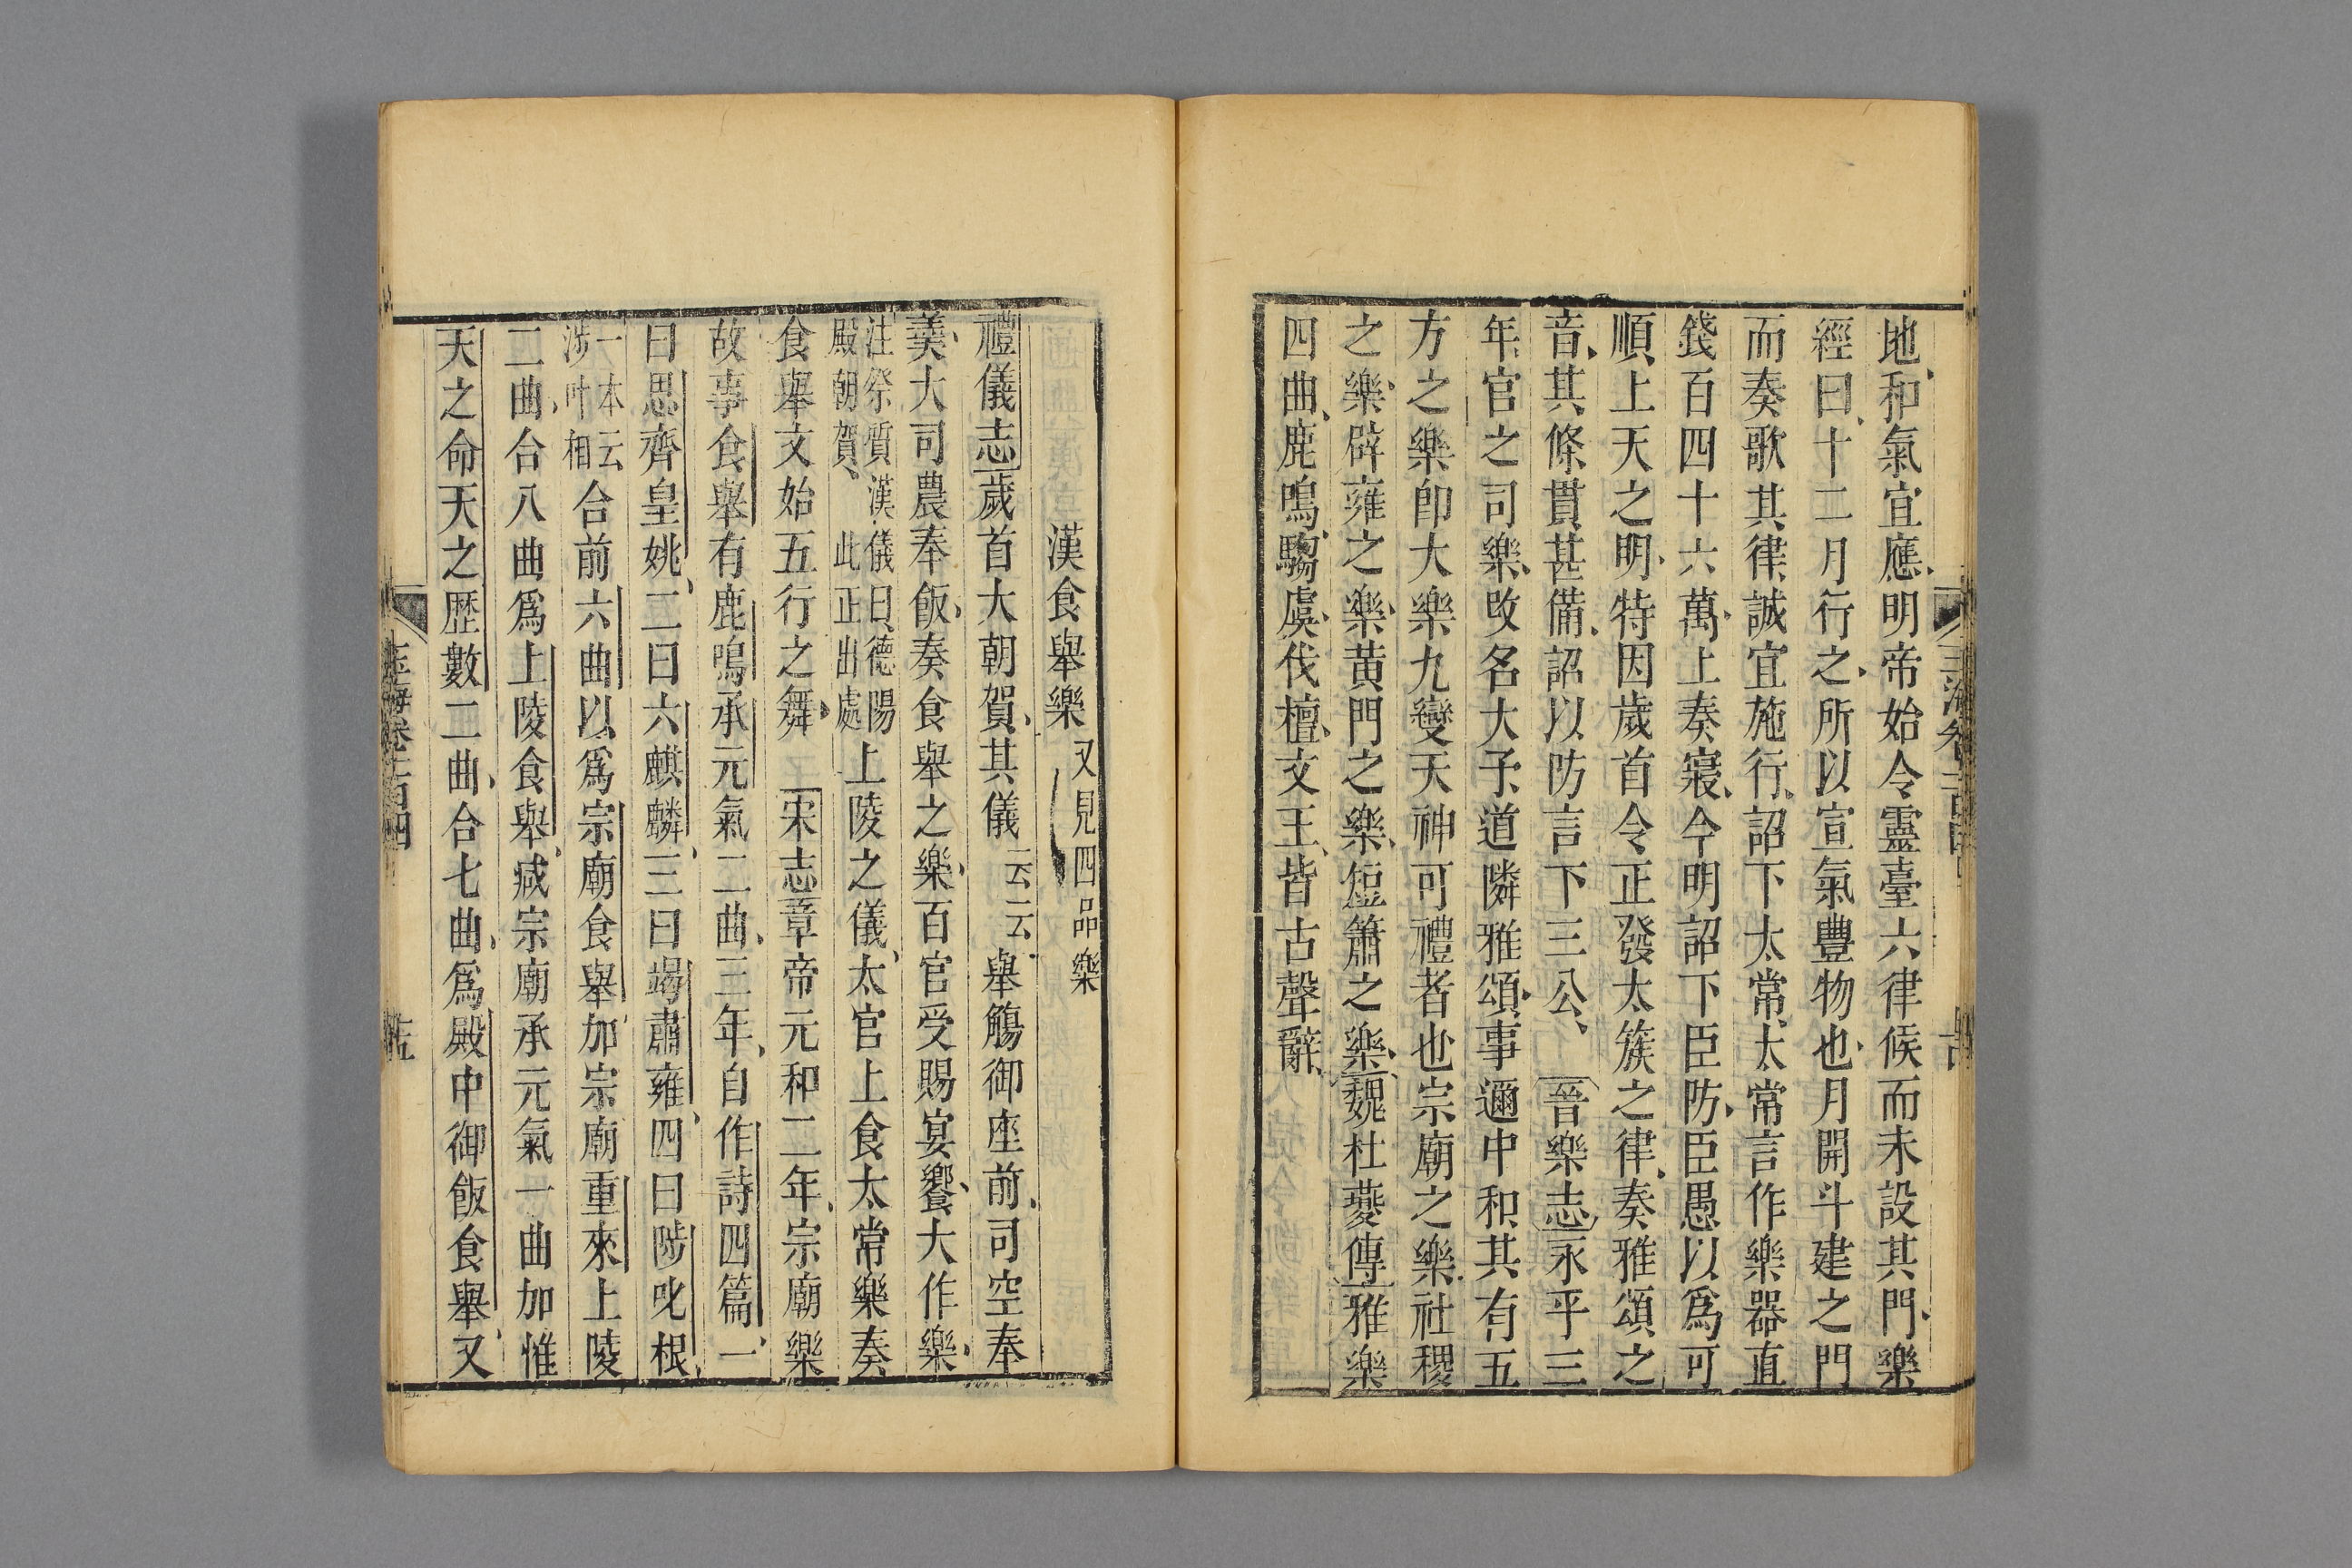 地和氣宜應明帝始令靈臺六律候而未設其門樂
經曰十二月行之所以宣氣豐物也月開斗建之門
而奏歌其律誠宜施行詔下太常太常言作樂器直
錢百四十六萬上奏寢今明詔下臣防臣愚以爲可
順上天之明特因歲首令正發太簇之律奏雅頌之
音其條貫甚備詔以防言下三公 晉樂志永平三
年官之司樂改名大予道隣雅頌事邇中和其有五
方之樂卽大樂九變天神可禮者也宗廟之樂社稷
之樂辟雍之樂黃門之樂短簫之樂魏杜夔傳雅樂
四曲鹿鳴騶虞伐檀文王皆古聲辭
漢食舉樂 又見四品樂
禮儀志歲首大朝賀其儀云云舉觴御座前司空奉
羹大司農奉飯奏食舉之樂百官受賜宴饗大作樂
注祭質漢儀曰德陽殿朝賀 此正出處上陵之儀太官上食太常樂奏
食舉文始五行之舞 宋志章帝元和二年宗廟樂
故事食舉有鹿鳴承元氣二曲三年自作詩四篇一
曰思齊皇姚二曰六麒麟三曰竭肅雍四曰陟叱根
一本云涉叶相合前六曲以爲宗廟食舉加宗廟重來上陵
二曲合八曲爲上陵食舉减宗廟承元氣一曲加惟
天之命天之歷數二曲合七曲爲殿中御飯食舉又
玉海卷一百四